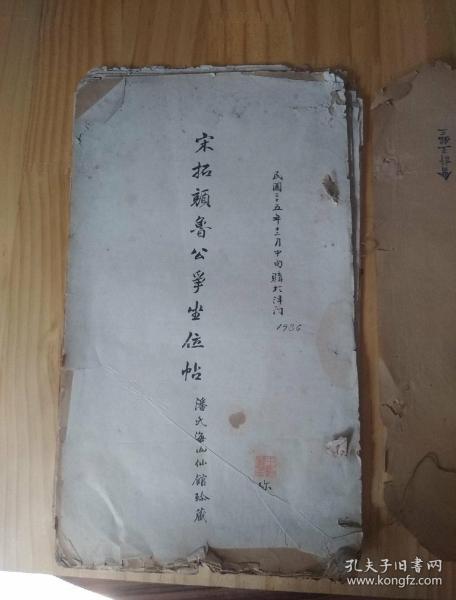 民國二十五年十二月中旬購於津門
1936
宋拓顏魯公爭坐位帖
潘氏海山仙館珍藏
孔夫子旧书网
www.kongfz.com